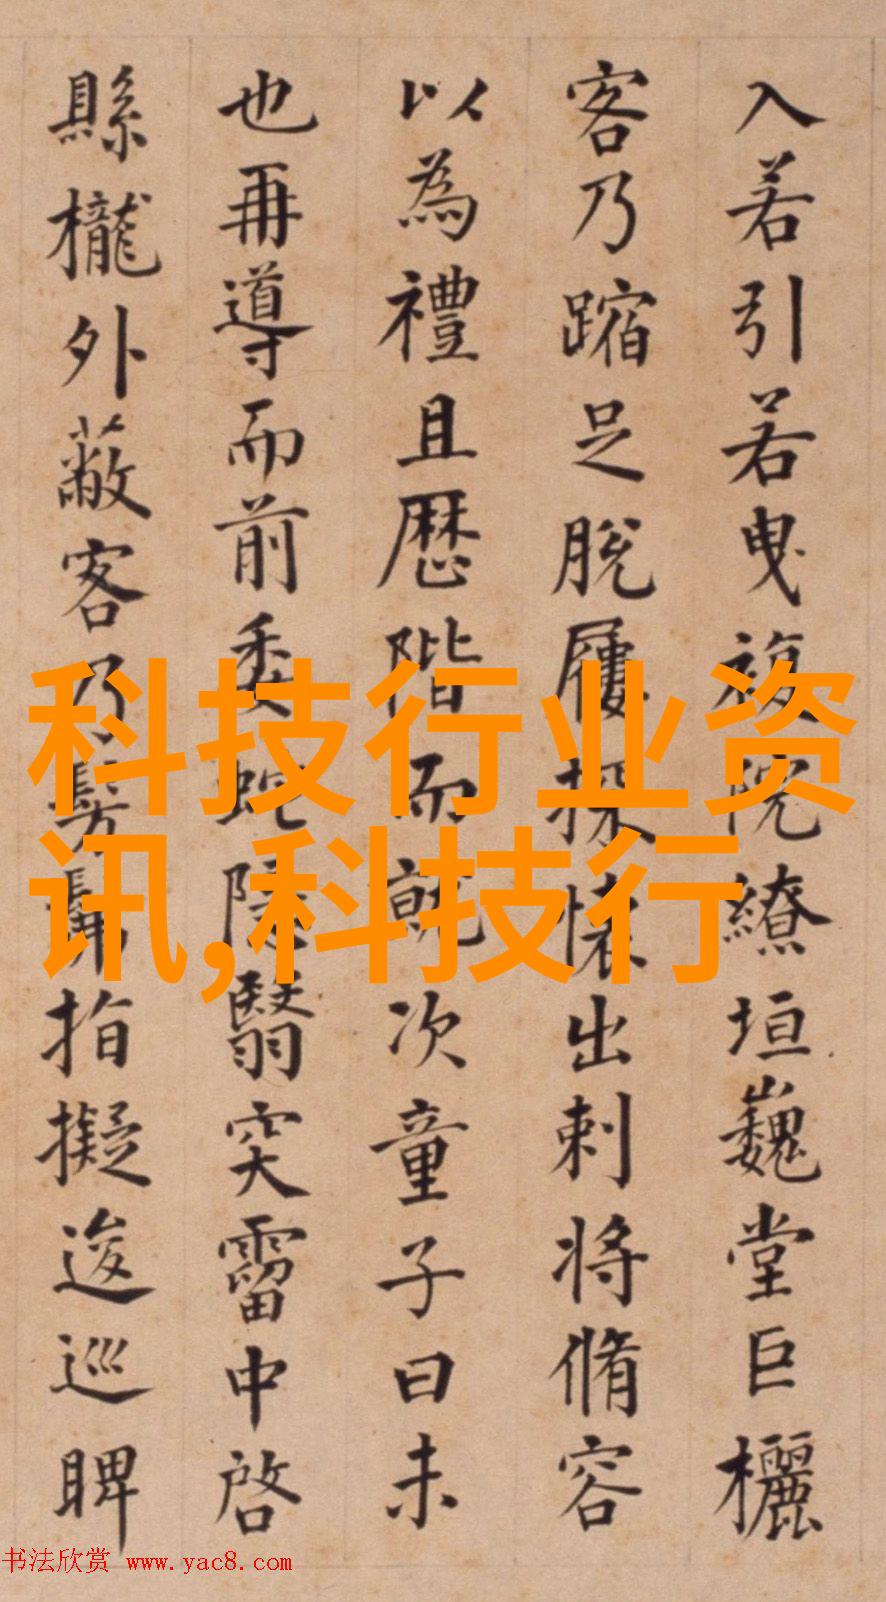 入若引若曳複院繚垣巍堂巨欐
客乃蹜足脫屨探懷出刺將脩容
以為禮且歷階而就次童子曰未
也再導而前委蛇隱翳穾霤中啓
縣櫳外蔽客乃髣髴指擬逡巡睥
科技行业资
讯,科技行
书法欣赏 www.yac8.com